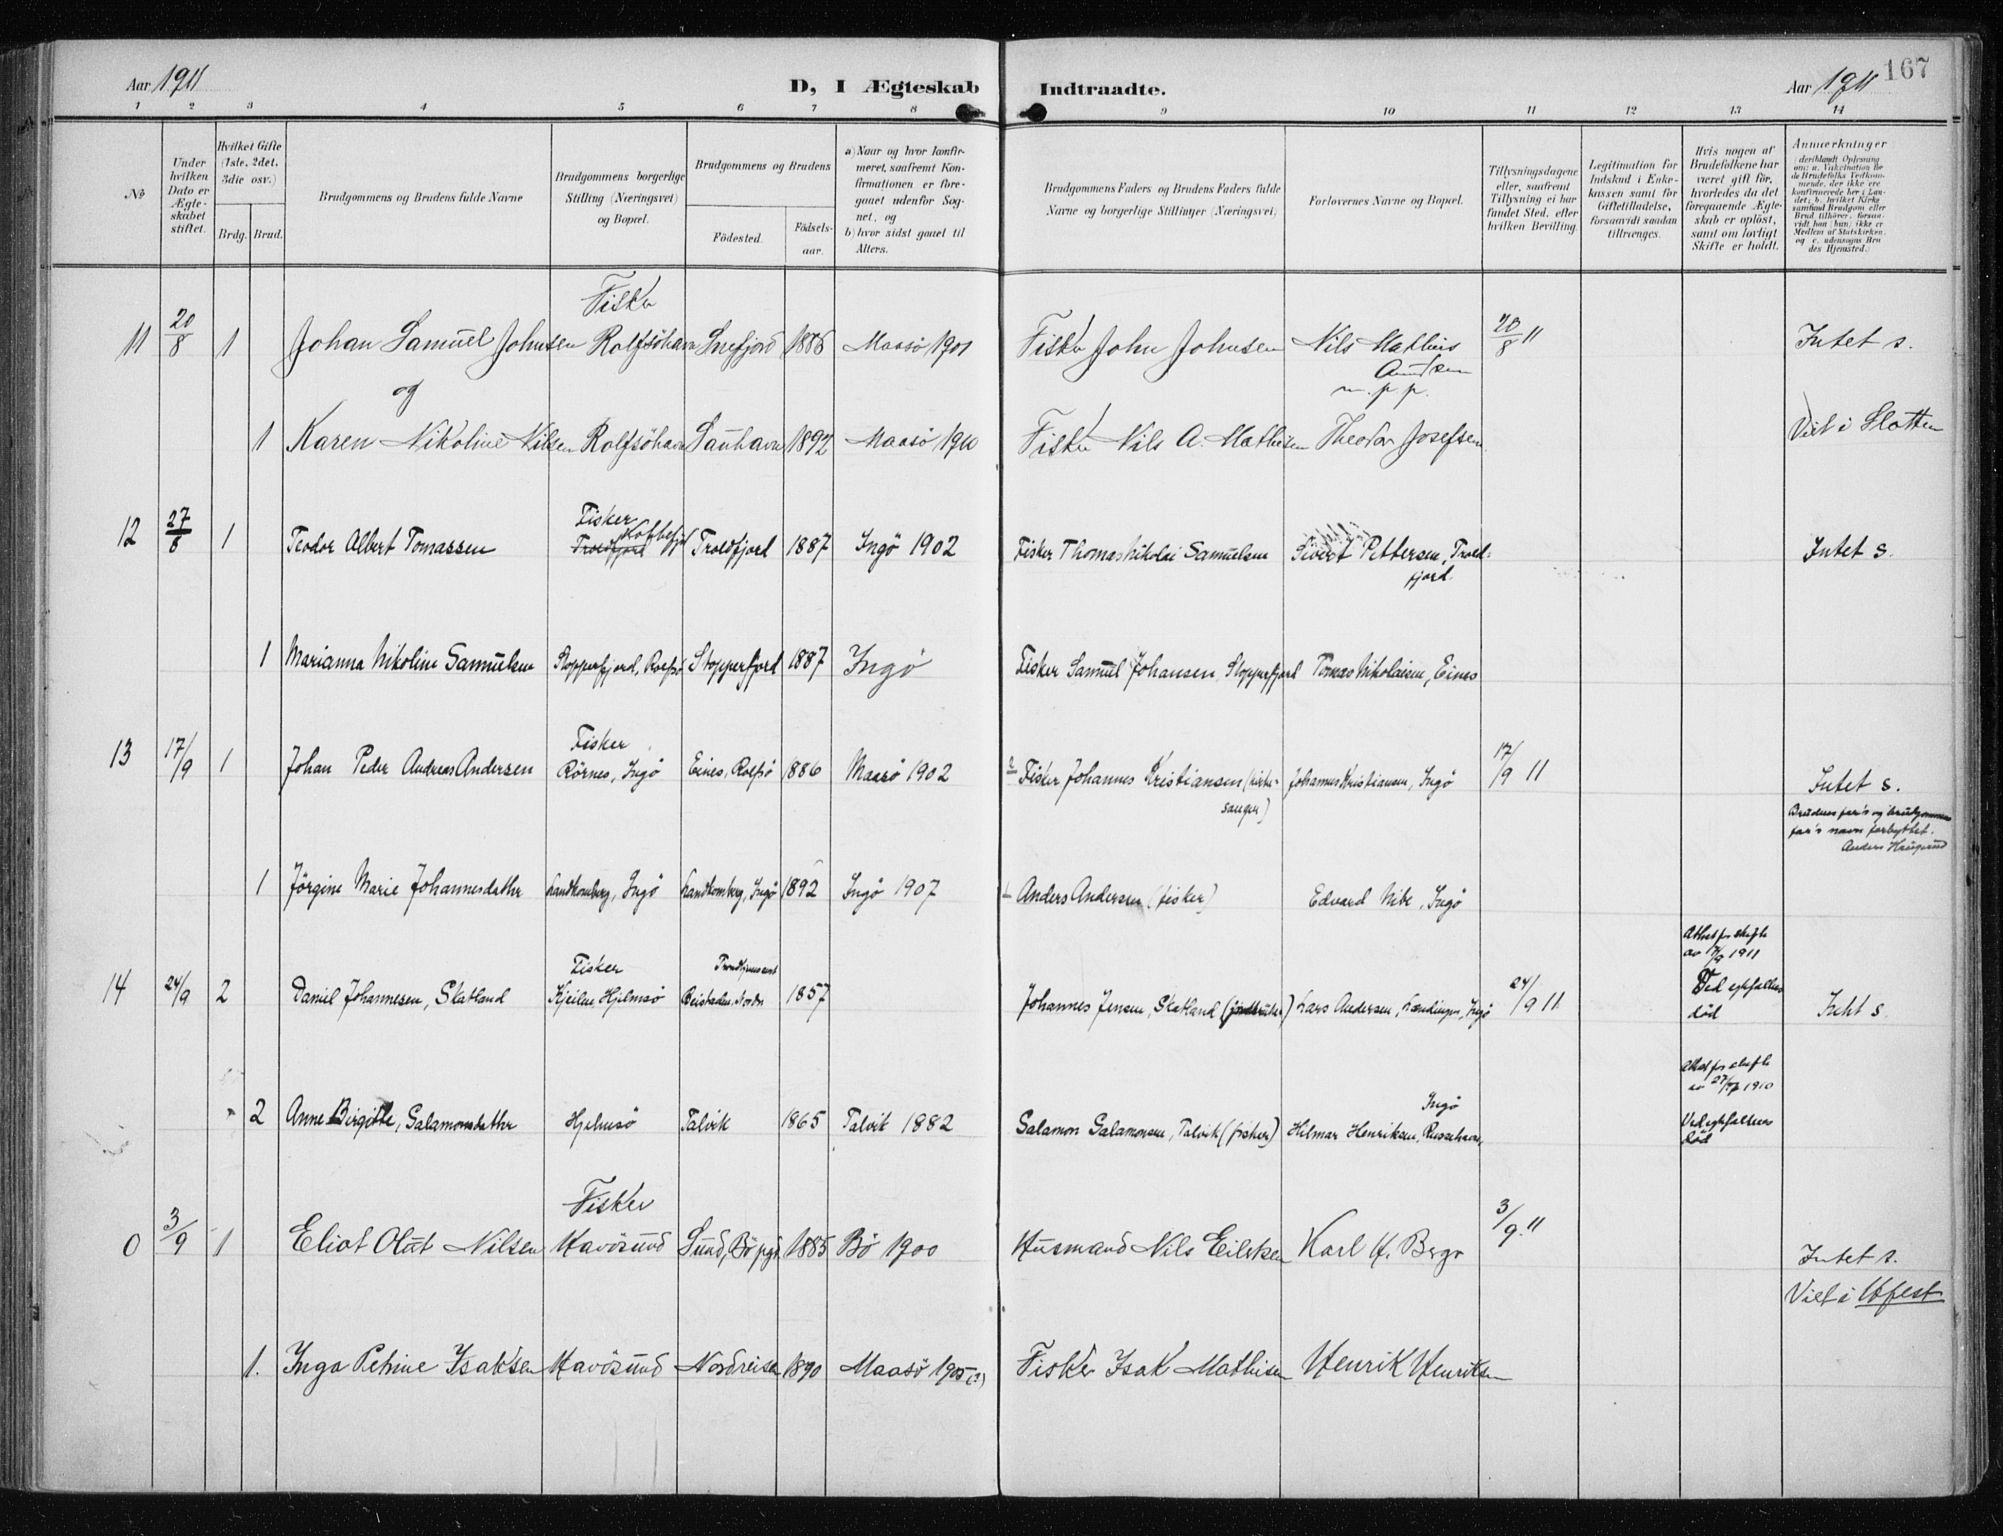 Aar 1911
D, I Ægteskab Indtraadte.
Aar 1911
167
1 2 3 4 5 6 7 8 9 10 11 12 13 14
No
Under hvilken Dato er Ægteskabet stiftet.
Hvilket Gifte (1ste, 2det, 3die osv.)
Brdg. Brud.
Brudgommens og Brudens fulde Navne
Brudgommens borgerlige Stilling (Næringsvei) og Bopæl.
Brudgommens og Brudens
Fødested.
Fødselsaar.
a) Naar og hvor konfirmeret, saafremt Konfirmationen er foregaaet udenfor Sognet, og
b) hvor sidst gaaet til Alters.
Brudgommens Faders og Brudens Faders fulde Navne og borgerlige Stillinger (Næringsvei)
Forlovernes Navne og Bopæl.
Tillysningsdagene eller, saafremt Tillysning ei har fundet Sted, efter hvilken Bevilling.
Legitimation for Indskud i Enkekassen samt for Giftetilladelse, forsaavidt saadan tiltrænges.
Hvis nogen af Brudefolkene har været gift før, hvorledes da det foregaaende Ægteskab er opløst, samt om lovligt Skifte er holdt.
Anmerkninger
(deriblandt Oplysning om: a. Vakcination for de Brudefolks Vedkommende, der ikke ere konfirmerede her i Landet; b. hvilket Kirkesamfund Brudgom eller Brud tilhører, forsaavidt han (hun) ikke er Medlem af Statskirken, og c. udensogns Brudes Hjemsted.)
11 20/8 1 Johan Samuel Johnsen Fisker Rolfsöhavn Snefjord 1886 Maasö 1901 Fisker John Johnsen Nils Mathis Amundsen m. p. p. 20/8 11 Intet s.
og
1 Karen Nikoline Nilsen Rolfsöhavn Sauhavn 1892 Maasö 1910 Fisker Nils A. Mathisen Theodor Josefsen Viet i Slotten
12 27/8 1 Teodor Albert Tomassen Fisker Troldfjord Kobbefjd Troldfjord 1887 Ingø 1902 Fisker Thomas Nikolai Samuelsen Sivert Pettersen, Troldfjord. Intet s.
1 Marianna Nikoline Samuelsen Stopperfjord, Rolfsö Stopperfjord 1887 Ingø Fisker Samuel Johansen, Stopperfjord Tomas Nikolaisen, Eines
13 17/9 1 Johan Peder Andreas Andersen Fisker Rörnes, Ingø Eines, Rolfsø 1886 Maasø 1902 2 Fisker Johannes Kristiansen (kirkesanger) Johannes Kristiansen, Ingø 17/9 11 Intet s.
Brudens far's og brudgommens far's navn forbyttet.
Anders Haugerud
1 Jörgine Marie Johannesdatter Sandtomberg, Ingø Sandtomberg, Ingø 1892 Ingø 1907 1 Anders Andersen (fisker) Edvard Nibe, Ingø
14 24/9 2 Daniel Johannesen, Skatland Fisker Kjeilen, Hjelmsø Beistaden, Nordre 1857 Johannes Jensen, Skatland Lars Andersen, Ingø 24/9 11 Attest for skifte av 1911 Ved egtefælles död Intet s.
2 Anne Birgitte, Salamonsdatter Hjelmsö Talvik 1865 Talvik 1882 Salamon Salamonsen, Talvik (fisker) Hilmar Henriksen, Russehavn, Ingø Attest for skifte av 1910 Ved egtefælles död
0 3/9 1 Eliot Olut Nilsen Fisker Havösund Sund, Bö pgd. 1885 Bö 1900 Husmand Nils Eilertsen Karl H. Berg 3/9.11 Intet s.
Viet i Hfest
1. Inga Petrine Isaksen Havösund Nordreisen 1890 Maasö 1905 (?) Fisker Isak Mathisen Henrik Henriksen